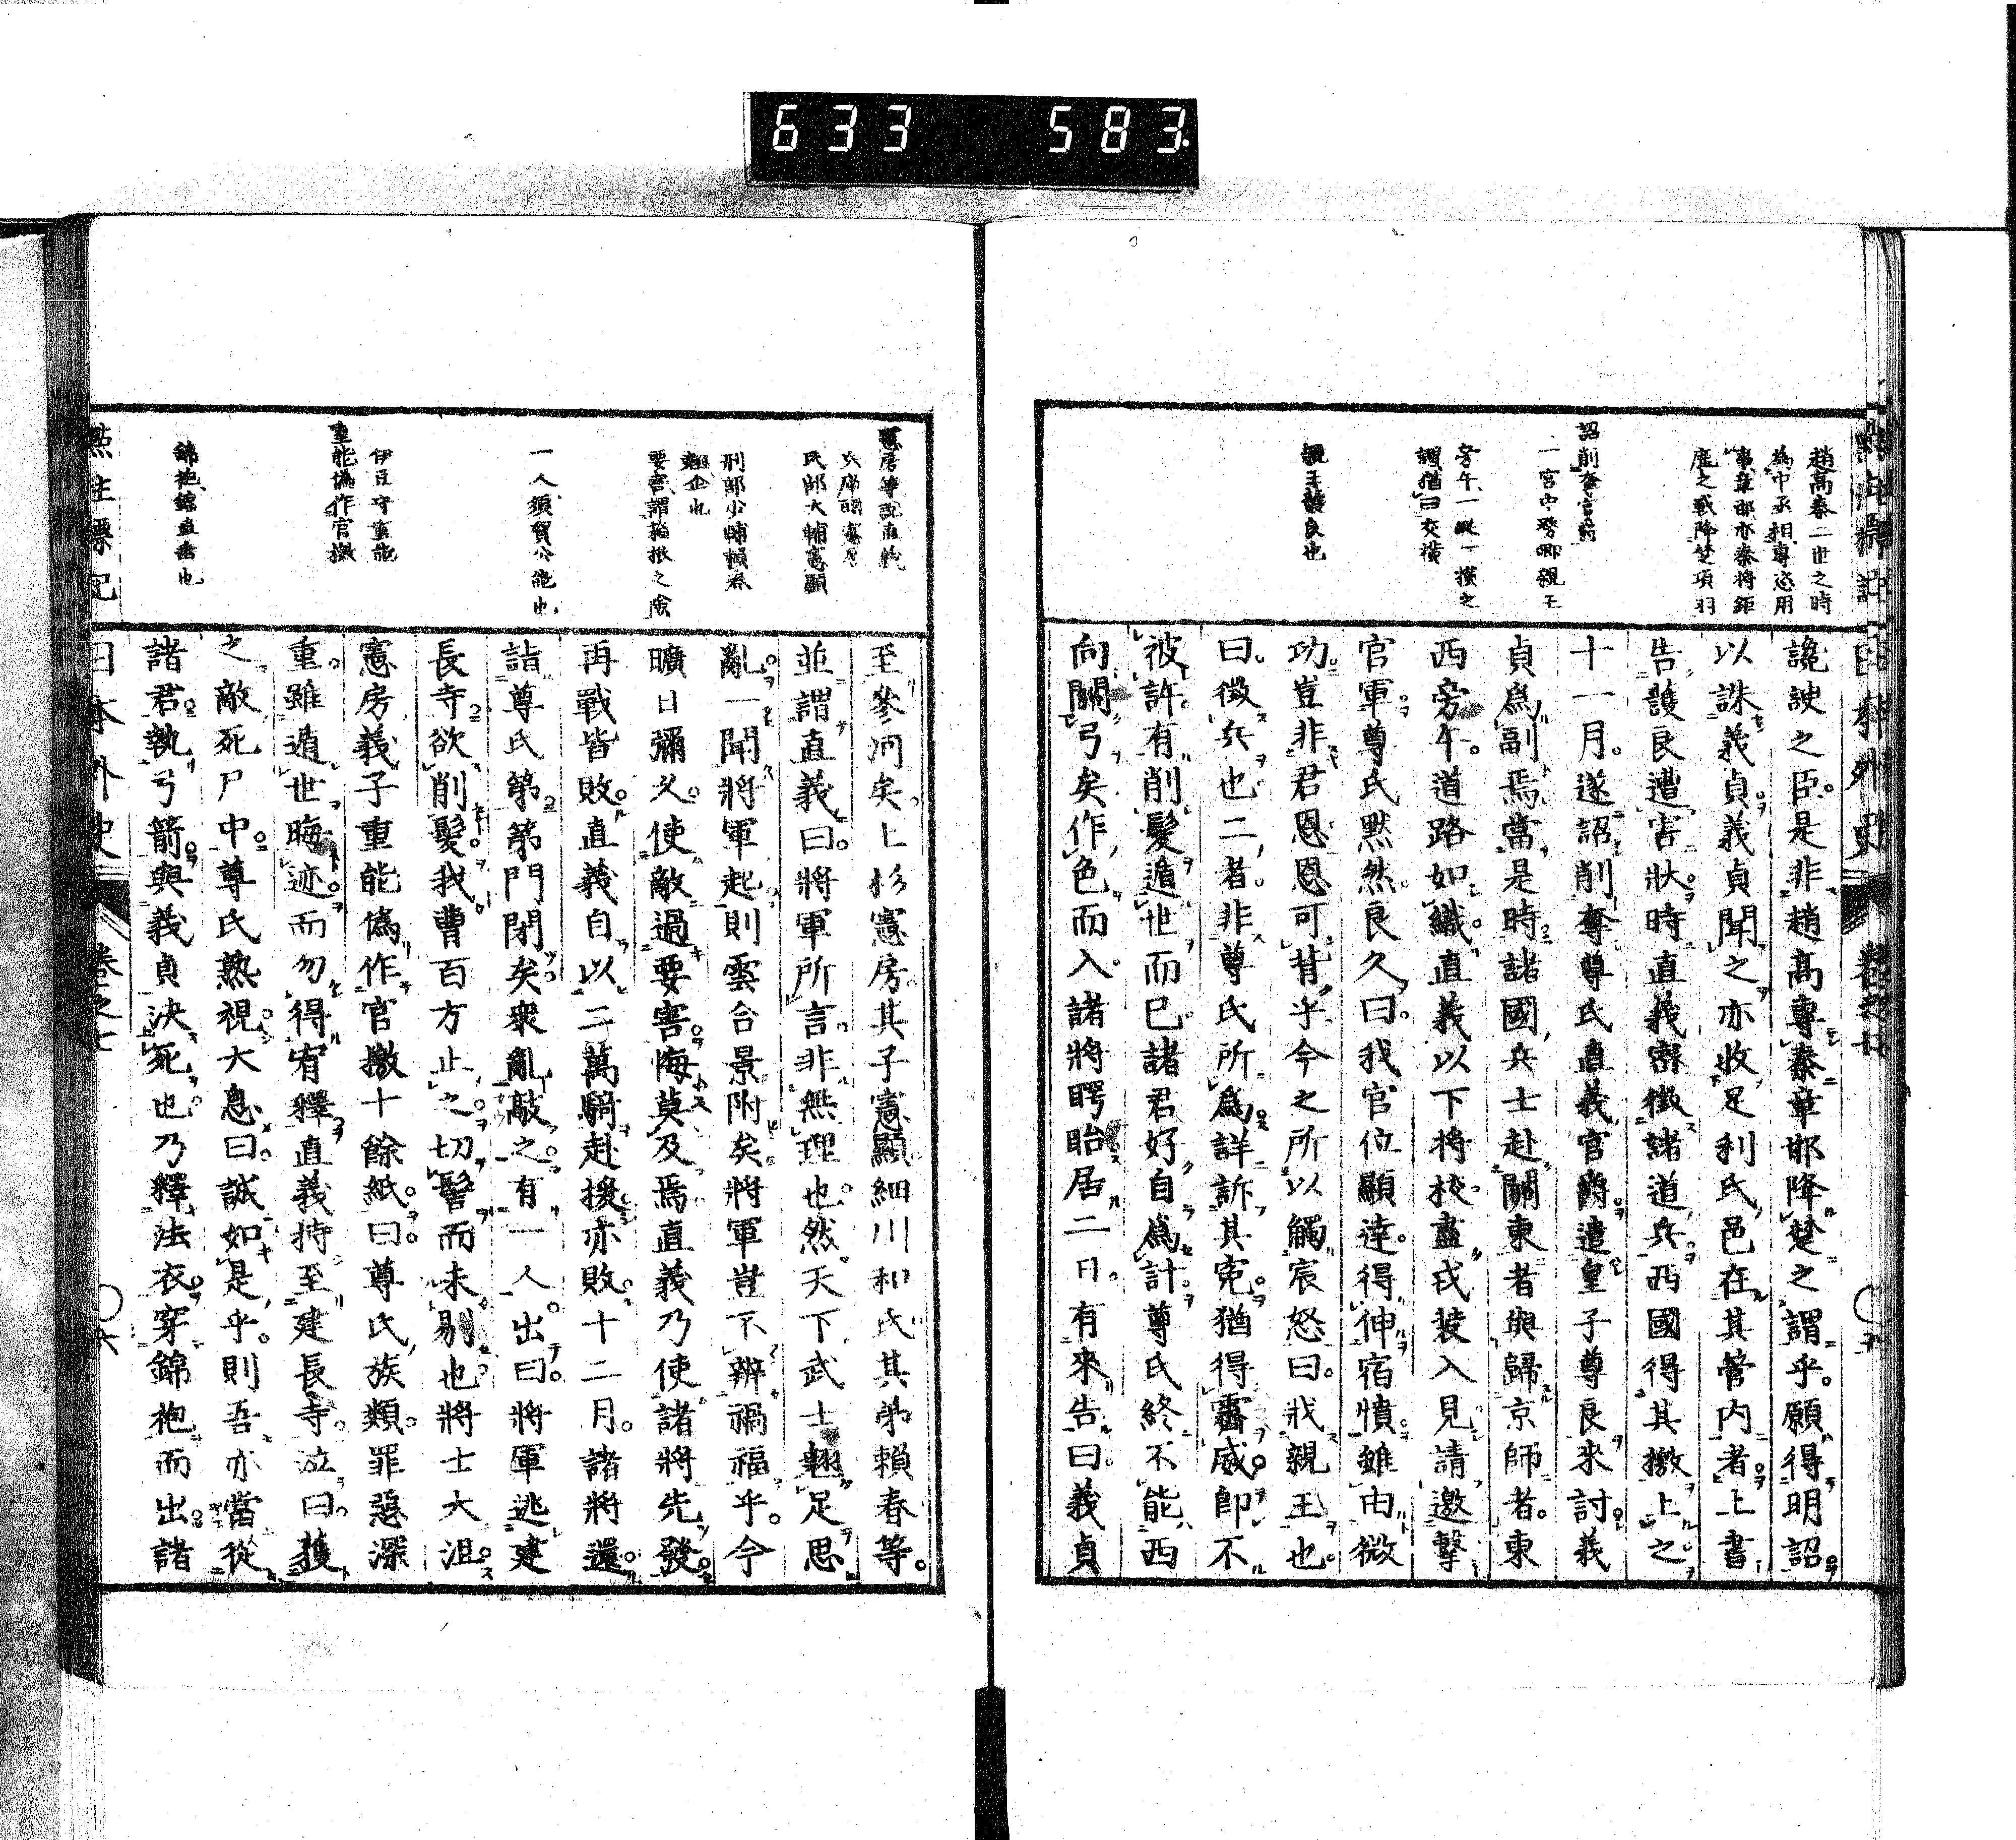 633 583.
趙高秦二世之時
為中丞相専恣用
事章邯亦秦將鉅
鹿之戰降楚項羽
詔削奪官爵
一宮中務卿親王
旁午一縱一横之
謂猶曰交横
親王護良也
讒諛之臣是非趙高專秦章邯降楚之謂乎願得明詔
以誅義貞義貞聞之亦收足利氏邑在其管内者上書
告護良遭害狀時直義密徵諸道兵西國得其檄上之
十一月遂詔削奪尊氏直義官爵遣皇子尊良來討義
貞爲副焉當是時諸國兵士赴關東者與歸京師者東
西旁午道路如織直義以下將校盡戎裝入見請邀擊
官軍尊氏默然良久曰我官位顯達得伸宿憤雖由微
功豈非君恩恩可背乎今之所以觸宸怒曰戕親王也
曰徵兵也二者非尊氏所爲詳訴其寃猶得霽威即不
彼許有削髮遁世而已諸君好自爲計尊氏終不能西
向關弓矣作色而入諸將瞪眙居二日有來告曰義貞
憲房等說直義
民部大輔憲顯
刑部少輔賴春
翹企也
要害謂
一人須賀公能也
伊豆守重能
重能僞作官檄
錦袍錦直垂也
至參河矣上杉憲房其子憲顯細川和氏其弟賴春等
並謂直義曰將軍所言非無理也然天下武士翹足思
亂一聞將軍起則雲合景附矣將軍豈不辨禍福乎今
曠日彌久使敵過要害悔莫及焉直義乃使諸將先發
再戰皆敗直義自以二萬騎赴援亦敗十二月諸將還
詣尊氏第第門閉矣衆亂敲之有一人出曰將軍逃建
長寺欲削髮我曹百方止之切髻而未剔也將士大沮
憲房義子重能僞作官檄十餘紙曰尊氏族類罪惡深
重雖遁世晦迹而勿得宥釋直義持至建長寺泣曰獲
之敵死尸中尊氏熟視大息曰誠如是乎則吾亦當從
諸君執弓箭與義貞決死也乃釋法衣穿錦袍而出諸
點註標記 日本外史 卷之七 六